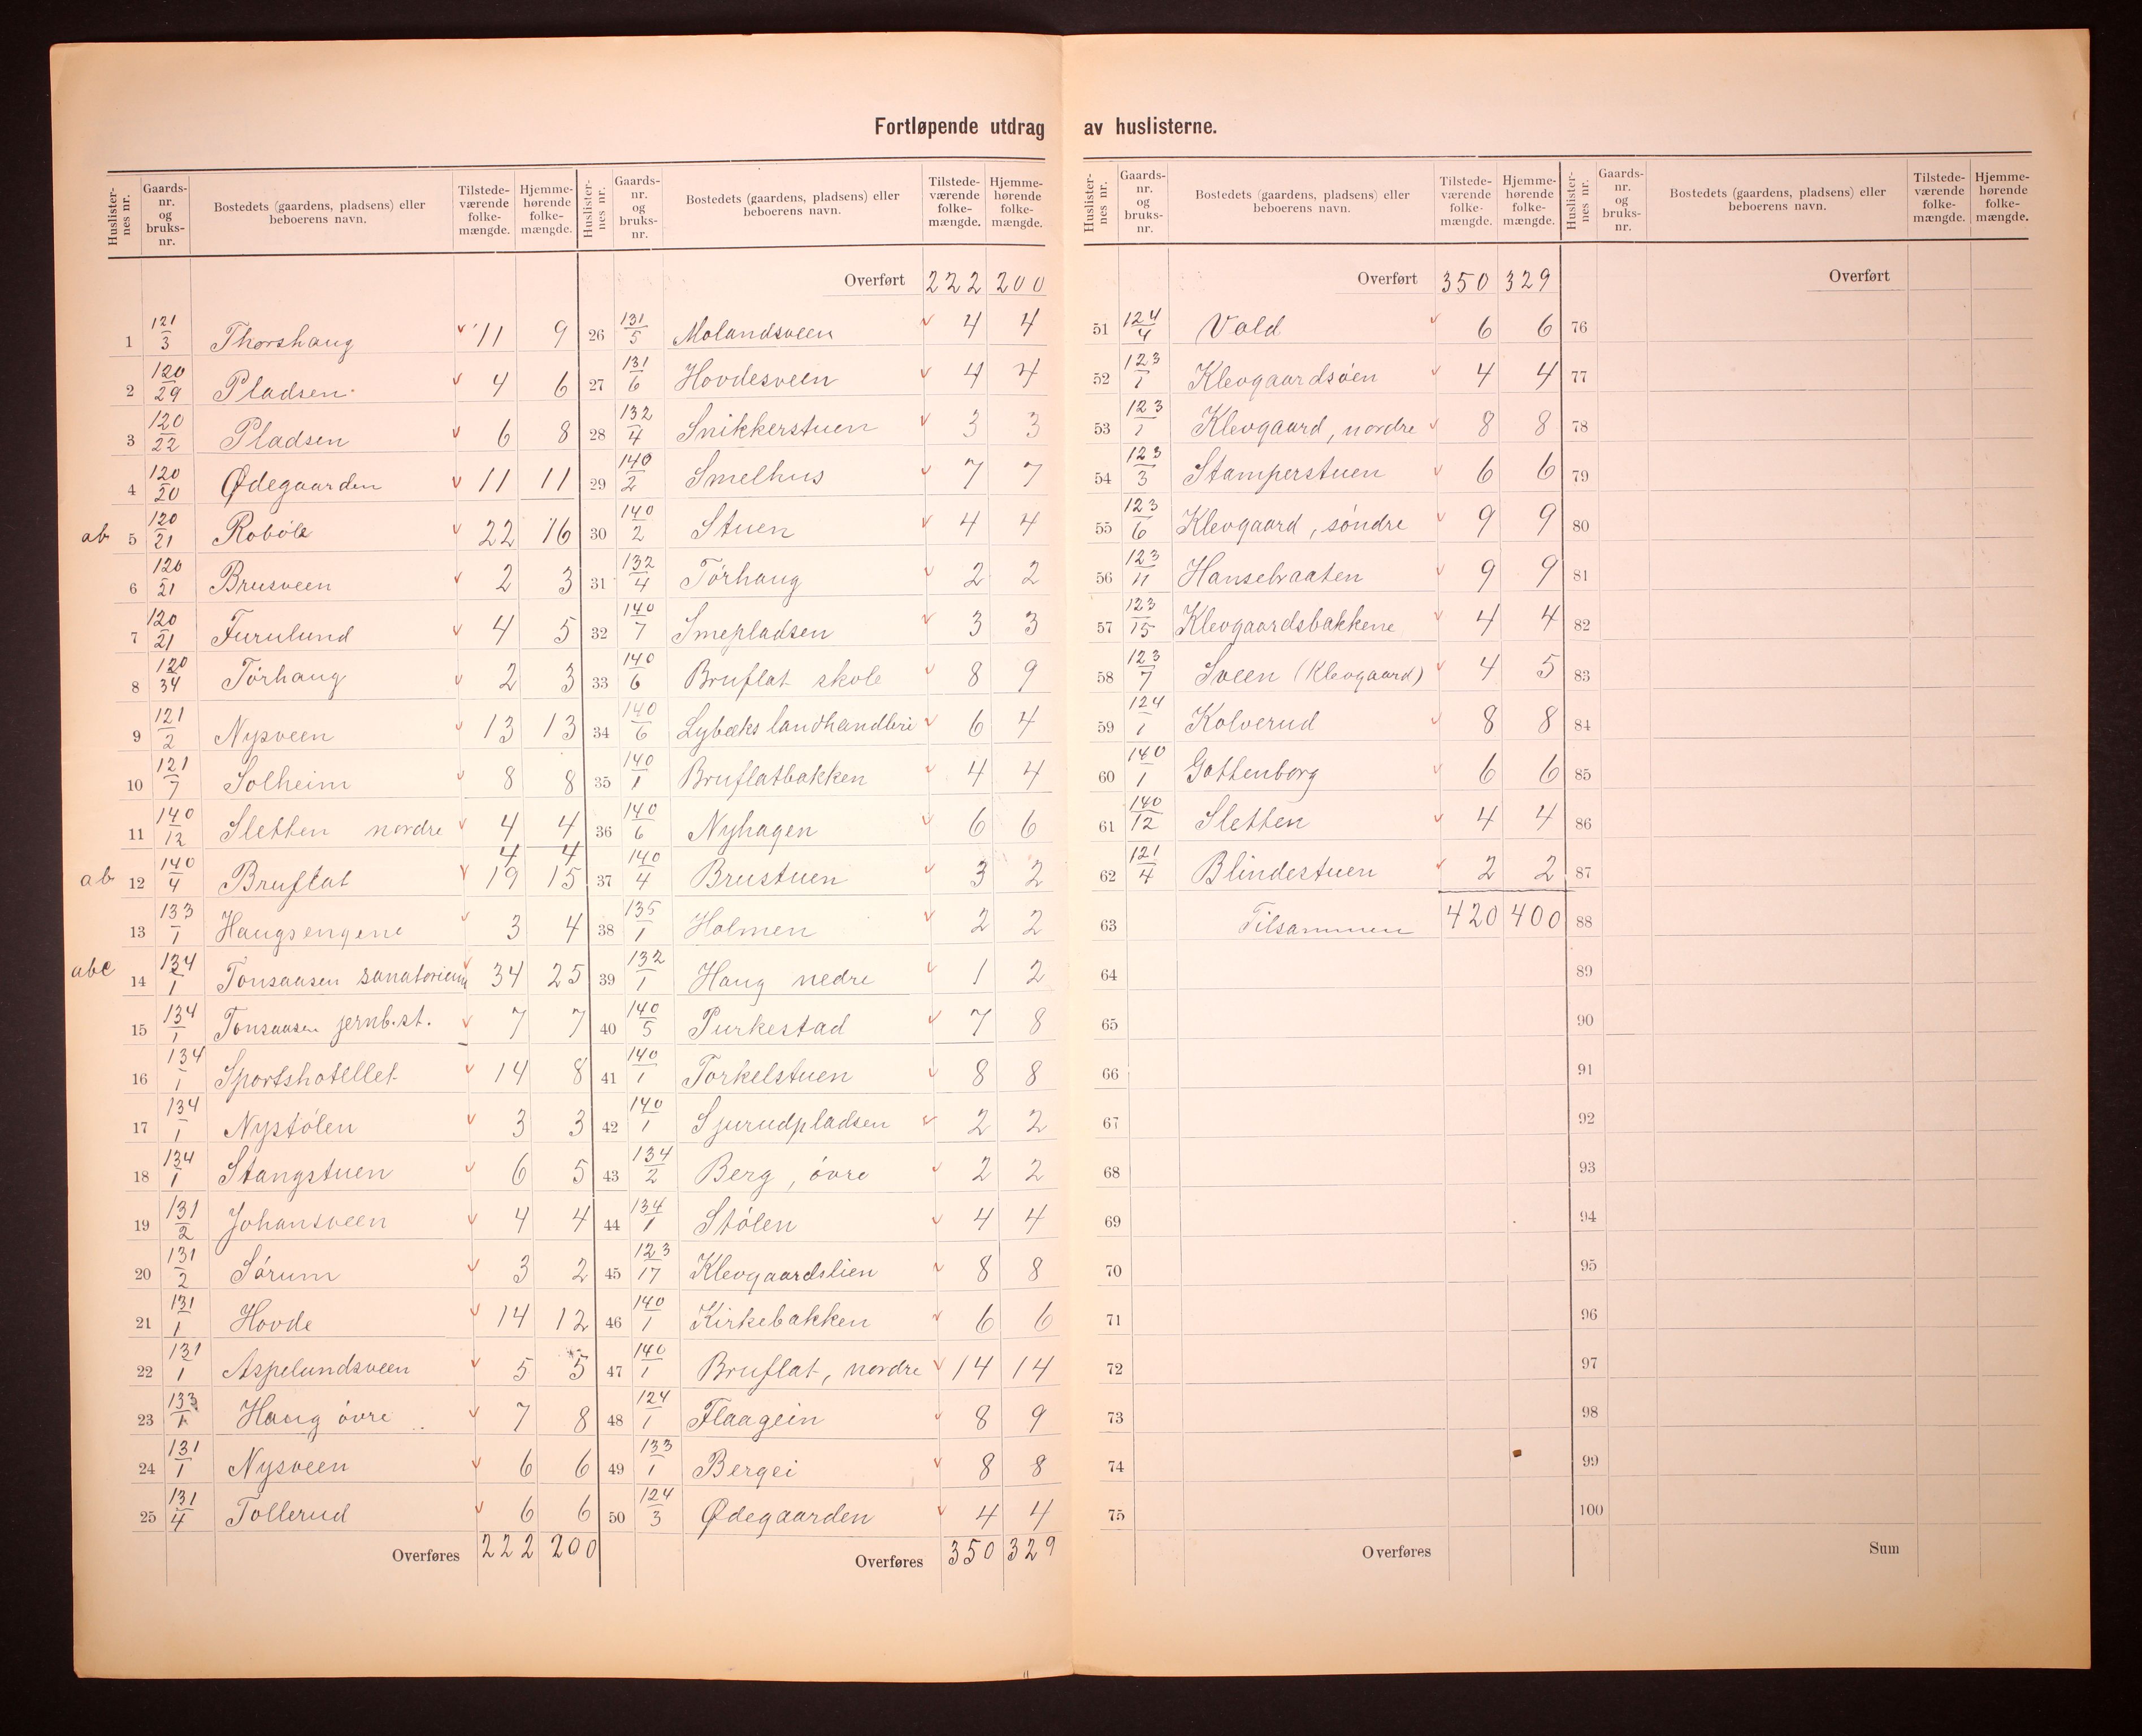 Fortløpende utdrag av huslisterne.
Huslister-nes nr. Gaards-nr. og bruks-nr. Bostedets (gaardens, pladsens) eller beboerens navn. Tilstede-værende folke-mængde. Hjemme-hørende folke-mængde.
1 121/3 Thorshaug v 11 9
2 120/29 Pladsen v 4 6
3 120/22 Pladsen v 6 8
4 120/20 Ødegaarden v 11 11
ab 5 120/21 Robøle v 22 16
6 120/21 Brusveen v 2 3
7 120/21 Furulund v 4 5
8 120/34 Tørhaug v 2 3
9 121/2 Nysveen v 13 13
10 121/7 Solheim v 8 8
11 140/12 Sletten nordre v 4 4
4 4
ab 12 140/4 Bruflat v 19 15
13 133/1 Haugsengene v 3 4
abc 14 134/1 Tonsaasen sanatorium v 34 25
15 134/1 Tonsaasen jernb.st. v 7 7
16 134/1 Sportshotellet v 14 8
17 134/1 Nystølen v 3 3
18 134/1 Stangstuen v 6 5
19 131/2 Johansveen v 4 4
20 131/2 Sørum v 3 2
21 131/1 Hovde v 14 12
22 131/1 Aspelundsveen v 5 5
23 133/1 Haug øvre v 7 8
24 131/1 Nysveen v 6 6
25 131/4 Tollerud v 6 6
Overføres 222 200
Huslister-nes nr. Gaards-nr. og bruks-nr. Bostedets (gaardens, pladsens) eller beboerens navn. Tilstede-værende folke-mængde. Hjemme-hørende folke-mængde.
Overført 222 200
26 131/5 Molandsveen v 4 4
27 131/6 Hovdesveen v 4 4
28 132/4 Snikkerstuen v 3 3
29 140/2 Smelhus v 7 7
30 140/2 Stuen v 4 4
31 132/4 Tørhaug v 2 2
32 140/7 Smepladsen v 3 3
33 140/6 Bruflat skole v 8 9
34 140/6 Lybeks landhandleri v 6 4
35 140/1 Bruflatbakken v 4 4
36 140/6 Nyhagen v 6 6
37 140/4 Brustuen v 3 2
38 135/1 Holmen v 2 2
39 132/1 Haug nedre v 1 2
40 140/5 Purkestad v 7 8
41 140/1 Torkelstuen v 8 8
42 140/1 Sjurudpladsen v 2 2
43 134/2 Berg, øvre v 2 2
44 134/1 Stølen v 4 4
45 123/17 Klevgaardslien v 8 8
46 140/1 Kirkebakken v 6 6
47 140/1 Bruflat, nordre v 14 14
48 124/1 Flaagein v 8 9
49 133/1 Bergei v 8 8
50 124/3 Ødegaarden v 4 4
Overføres 350 329
Huslister-nes nr. Gaards-nr. og bruks-nr. Bostedets (gaardens, pladsens) eller beboerens navn. Tilstede-værende folke-mængde. Hjemme-hørende folke-mængde.
Overført 350 329
51 124/4 Vold v 6 6
52 123/1 Klevgaardsøen v 4 4
53 123/1 Klevgaard, nordre v 8 8
54 123/3 Stamperstuen v 6 6
55 123/6 Klevgaard, søndre v 9 9
56 123/11 Hansebraaten v 9 9
57 123/15 Klevgaardsbakkene v 4 4
58 123/7 Sveen (Klevgaard) v 4 5
59 124/1 Kolverud v 8 8
60 140/1 Gottenborg v 6 6
61 140/12 Sletten v 4 4
62 121/4 Blindestuen v 2 2
63 Tilsammen 420 400
64
65
66
67
68
69
70
71
72
73
74
75
Overføres
Huslister-nes nr. Gaards-nr. og bruks-nr. Bostedets (gaardens, pladsens) eller beboerens navn. Tilstede-værende folke-mængde. Hjemme-hørende folke-mængde.
Overført
76
77
78
79
80
81
82
83
84
85
86
87
88
89
90
91
92
93
94
95
96
97
98
99
100
Sum